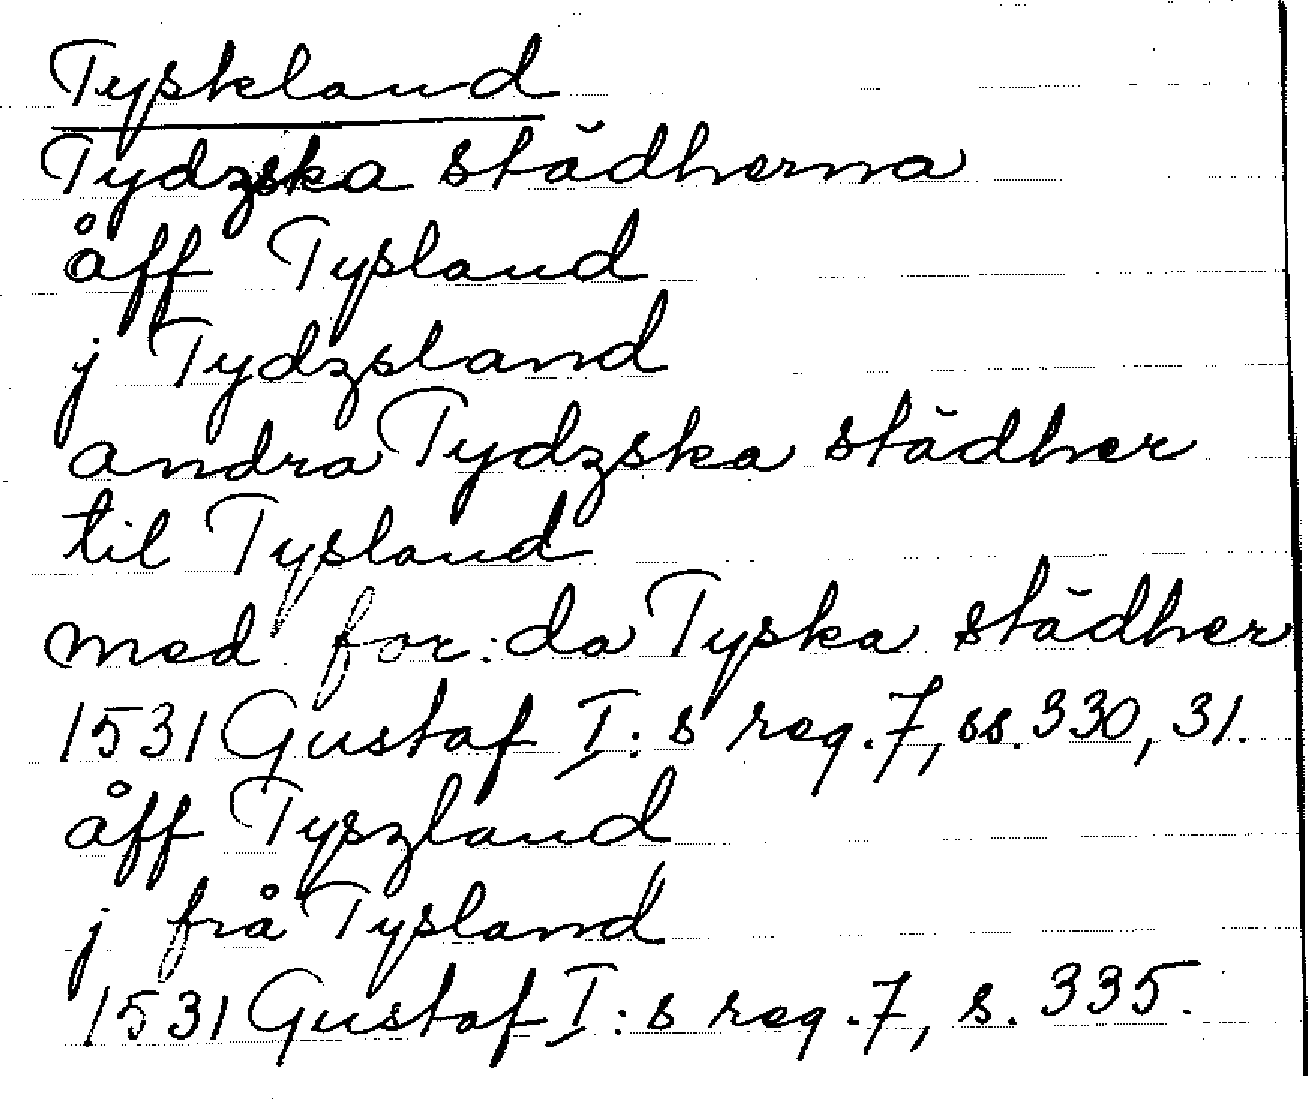 Tyskland
Tydzska städherna
åff Tysland
j Tydzsland
andra Tydzska städher
til Tysland
med for:da Tyska städher
1531 Gustaf I:s reg. 7, ss. 330, 31.
åff Tyszland
j frå Tysland
1531 Gustaf I:s reg. 7, s. 335.